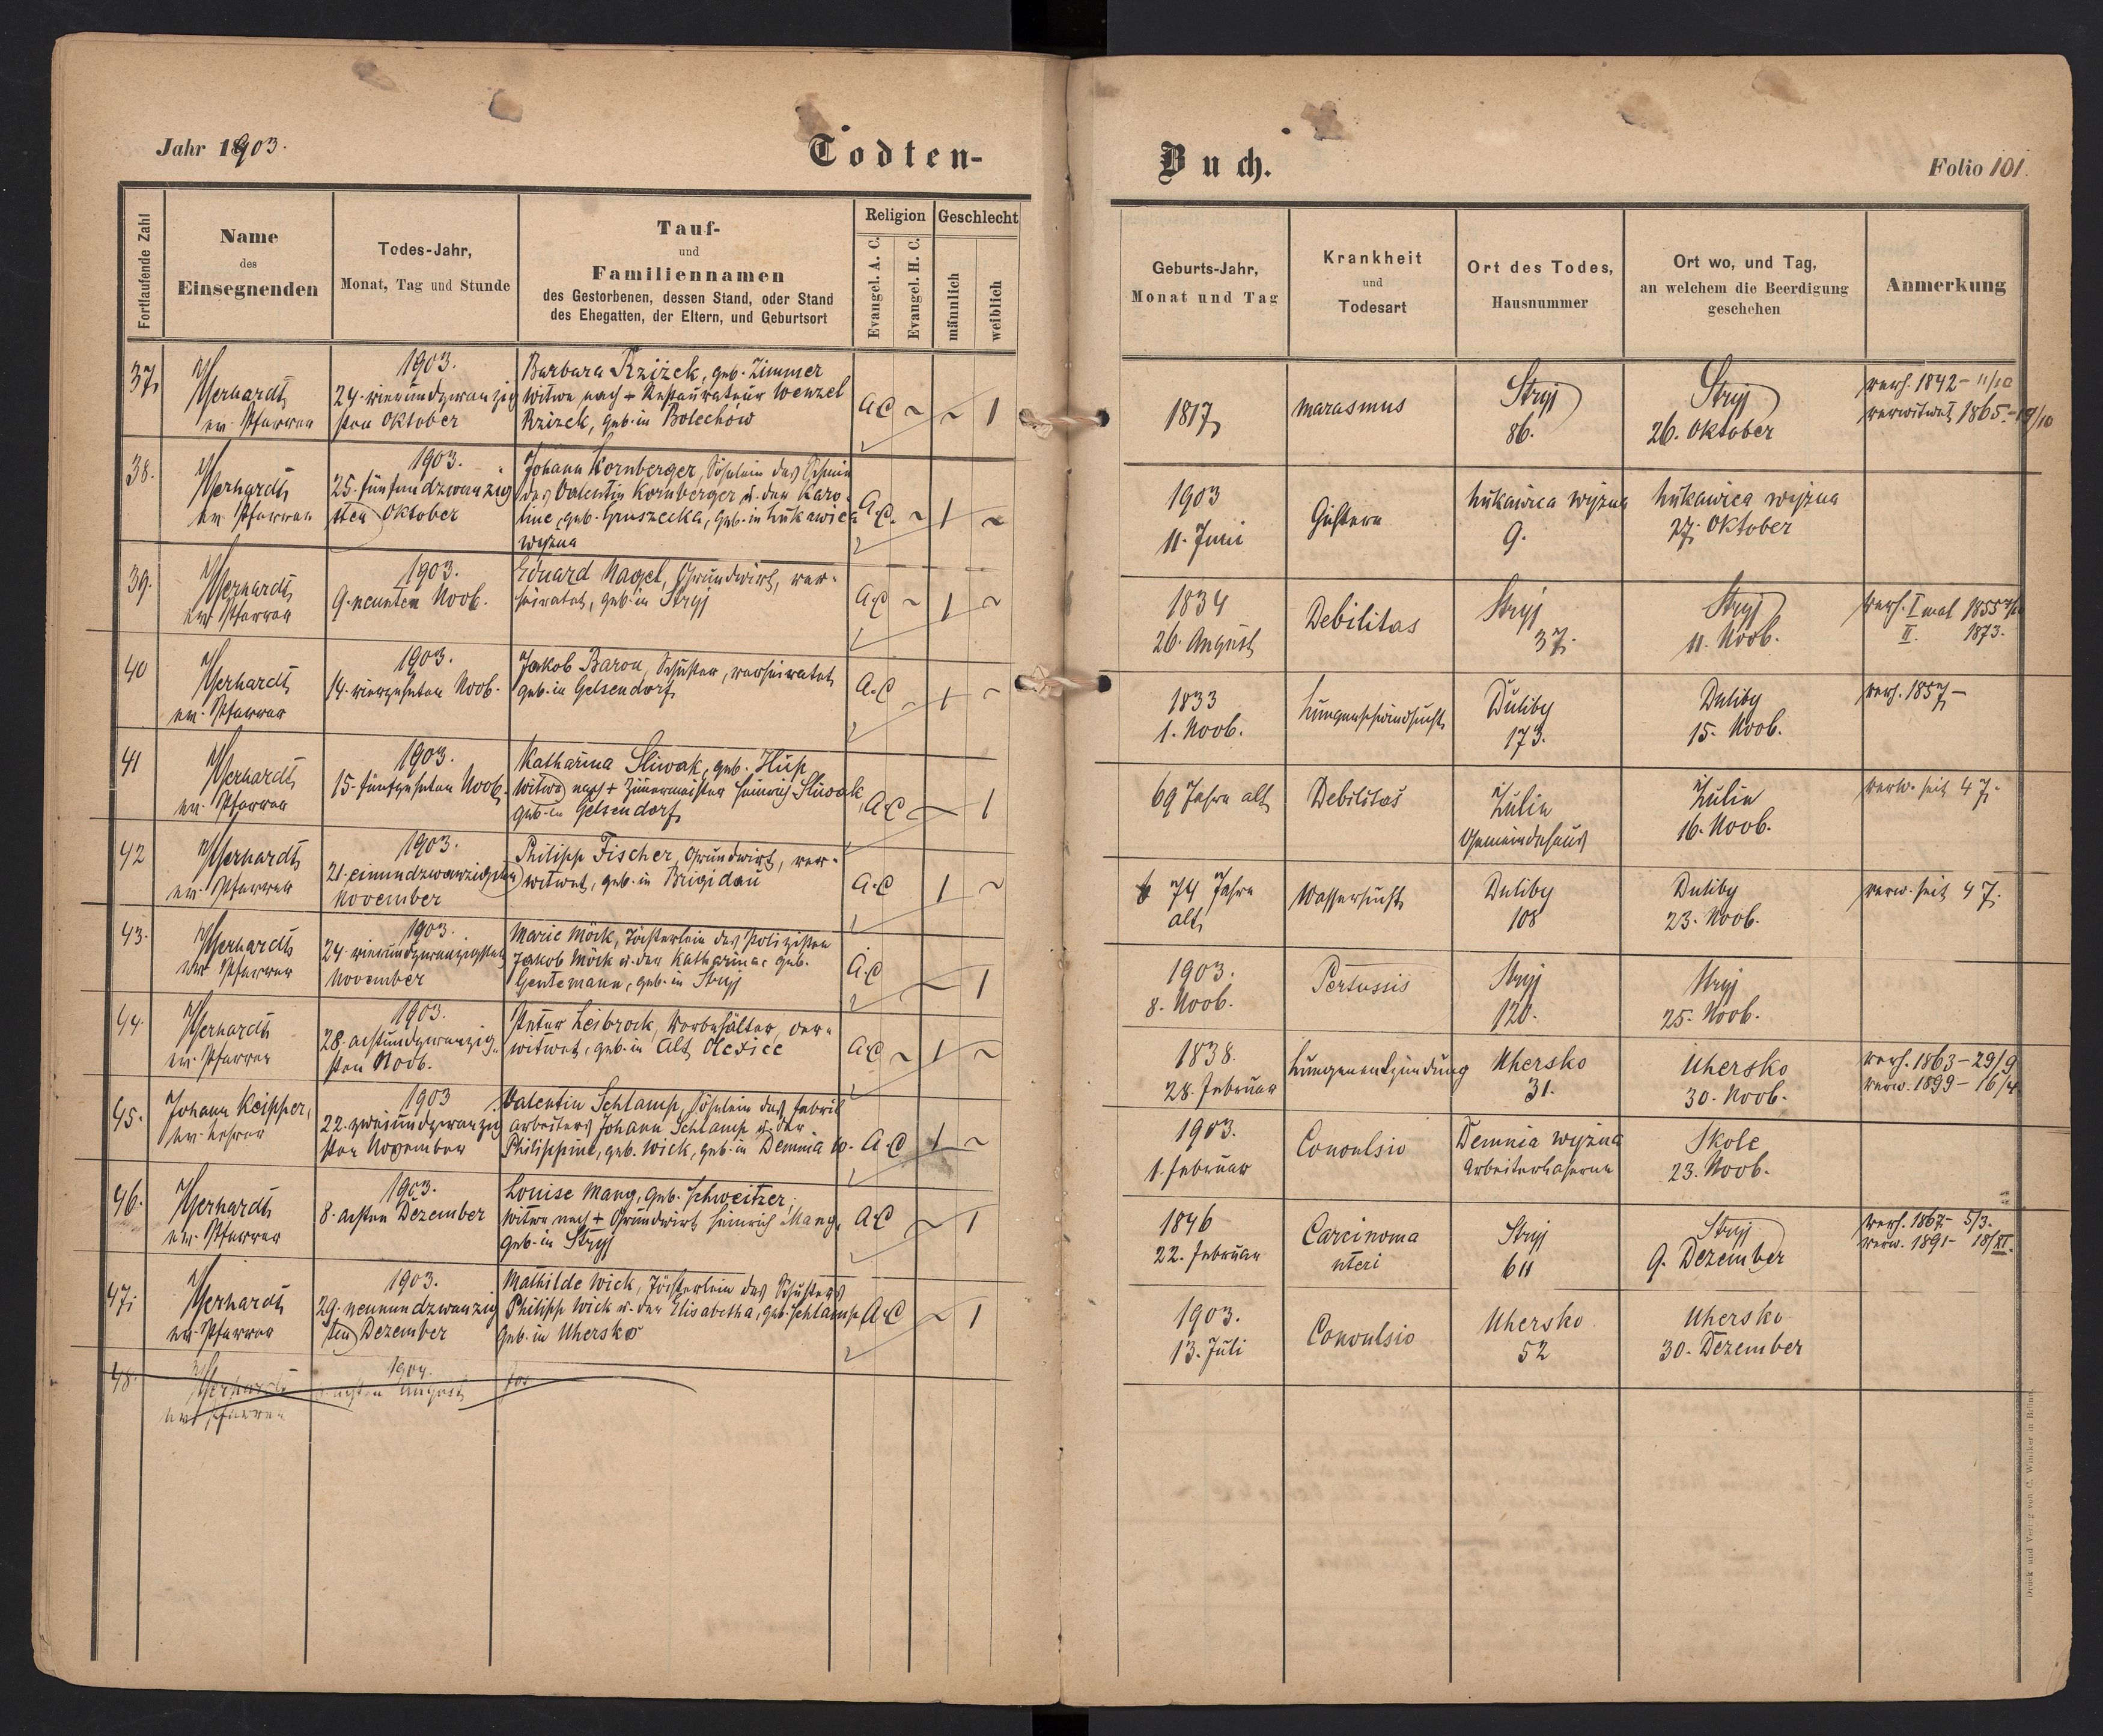 Jahr 1903.
Todten-
Fortlaufende Zahl
Name
des
Einsegnenden
Todes-Jahr,
Monat, Tag und Stunde
Tauf-
und
Familiennamen
des Gestorbenen, dessen Stand, oder Stand
des Ehegatten, der Eltern, und Geburtsort
Religion
Evangel. A. C.
Evangel. H. C.
Geschlecht
männlich
weiblich
37,
ev. Pfarrer
1903.
24. vierundzwanzig
sten Oktober
Barbara Rziżek, geb. Zimmer
Witwe nach + Restaurateur Wenzel
Rzizek, geb. in Bolechów
A.C ~ ~ 1
38.
ev. Pfarrer
1903.
25. fünfundzwanzig
sten Oktober
Johann Kornberger, Söhnlein des
des Valentin Kornberger u. der Karo-
line, geb. Gruszecka, geb. in Lukawica
wyżna
A.C. ~ 1 ~
39.
ev. Pfarrer
1903.
9. neunten Novb.
Eduard Nagel, Grundwirt, ver-
heiratet, geb. in Stryj
A.C ~ 1 ~
40
ev. Pfarrer
1903.
14. vierzehnten Novb.
Jakob Baron, Schuster, verheiratet
geb. in Gelsendorf
A.C ~ 1 ~
41
ev. Pfarrer
1903.
15. fünfzehnten Novb.
Katharina Sliwak, geb. Hup
Witwe nach + Zimmermeister Heinrich Sliwak,
geb. in Gelsendorf
A.C ~ 1
42
ev. Pfarrer
1903.
21. einundzwanzigsten
November
Philipp Fischer, Grundwirt, ver-
witwet, geb. in Brigidau
A.C 1 ~
43.
ev. Pfarrer
1903.
24. vierundzwanzigsten
November
Marie Möck, Töchterlein des Polizisten
Jakob Möck u. der Katharina, geb.
Gentemann, geb. in Stryj
A.C ~ 1
44.
ev. Pfarrer
1903.
28. achtundzwanzig-
sten Novb.
Peter Leibrock, Vorbehälter, ver-
witwet, geb. in Alt Olexice
A.C ~ 1 ~
45.
Johann Keipper,
ev. Lehrer
1903
22. zweiundzwanzig
sten November
Valentin Schlamp, Söhnlein des Fabrik
arbeiters Johann Schlamp u. der
Philippine, geb. Wick, geb. in Demnia w.
A.C 1 ~
46.
ev. Pfarrer
1903.
8. achten Dezember
Louise Mang, geb. Schweitzer,
Witwe nach + Grundwirt Heinrich Mang,
geb. in Stryj
A.C ~ 1
47.
ev. Pfarrer
1903.
29. neunundzwanzig
sten Dezember
Mathilde Wick, Töchterlein des Schusters
Philipp Wick u. der Elisabetha, geb. Schlamp
geb. in Uhersko
A.C ~ 1
48.
ev. Pfarrer
1904.
achten August
Buch.
Folio 101.
Geburts-Jahr,
Monat und Tag
Krankheit
und
Todesart
Ort des Todes,
Hausnummer
Ort wo, und Tag,
an welchem die Beerdigung
geschehen
Anmerkung
1817,
marasmus
Stryj
86.
Stryj
26. Oktober
verh. 1842 - 11/10
verwitwet 1865 - 19/10
1903
11. Juni
Lukawica wyżna
9.
Lukawica wyżna
27. Oktober
1834
26. August
Debilitas
Stryj
37.
Stryj
11. Novb.
verh. I mal 1855
II. 1873.
1833
1. Novb.
Lungenschwindsucht
Duliby
173.
Duliby
15. Novb.
verh. 1857 -
69 Jahre alt
Debilitas
Żulin
Gemeindehaus
Żulin
16. Novb.
verw. seit 4 J.
74 Jahre
alt
Wassersucht
Duliby
108
Duliby
23. Novb.
verw. seit 4 J.
1903.
8. Novb.
Pertussis
Stryj
120.
Stryj
25. Novb.
1838.
28. Februar
Lungenentzündung
Uhersko
31.
Uhersko
30. Novb.
verh. 1863 - 29/9
verw. 1899 - 16/4
1903.
1. Februar
Convulsio
Demnia wyżna
Arbeiterkaserne
Skole
23. Novb.
1846
22. Februar
Carcinoma
uteri
Stryj
611
Stryj
9. Dezember
verh. 1867 - 5/3.
verw. 1891 - 18/XI.
1903.
13. Juli
Convulsio
Uhersko
52
Uhersko
30. Dezember
Druck und Verlag von C. Winiker in Brünn.